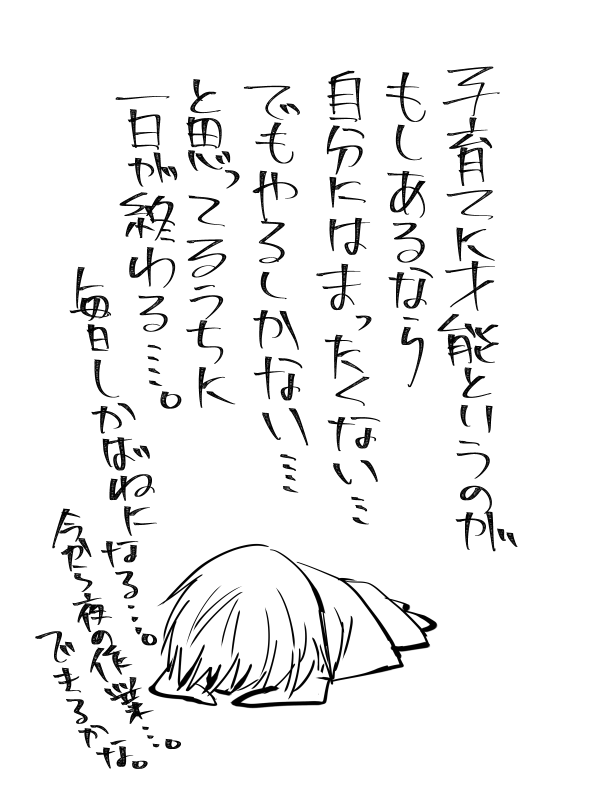 子育てに才能というのが
もしあるなら
自分にはまったくない…
でもやるしかない……
と思ってるうちに
一日が終わる……。
毎日しかばねになる……。
今から夜の作業……。
できるかな。